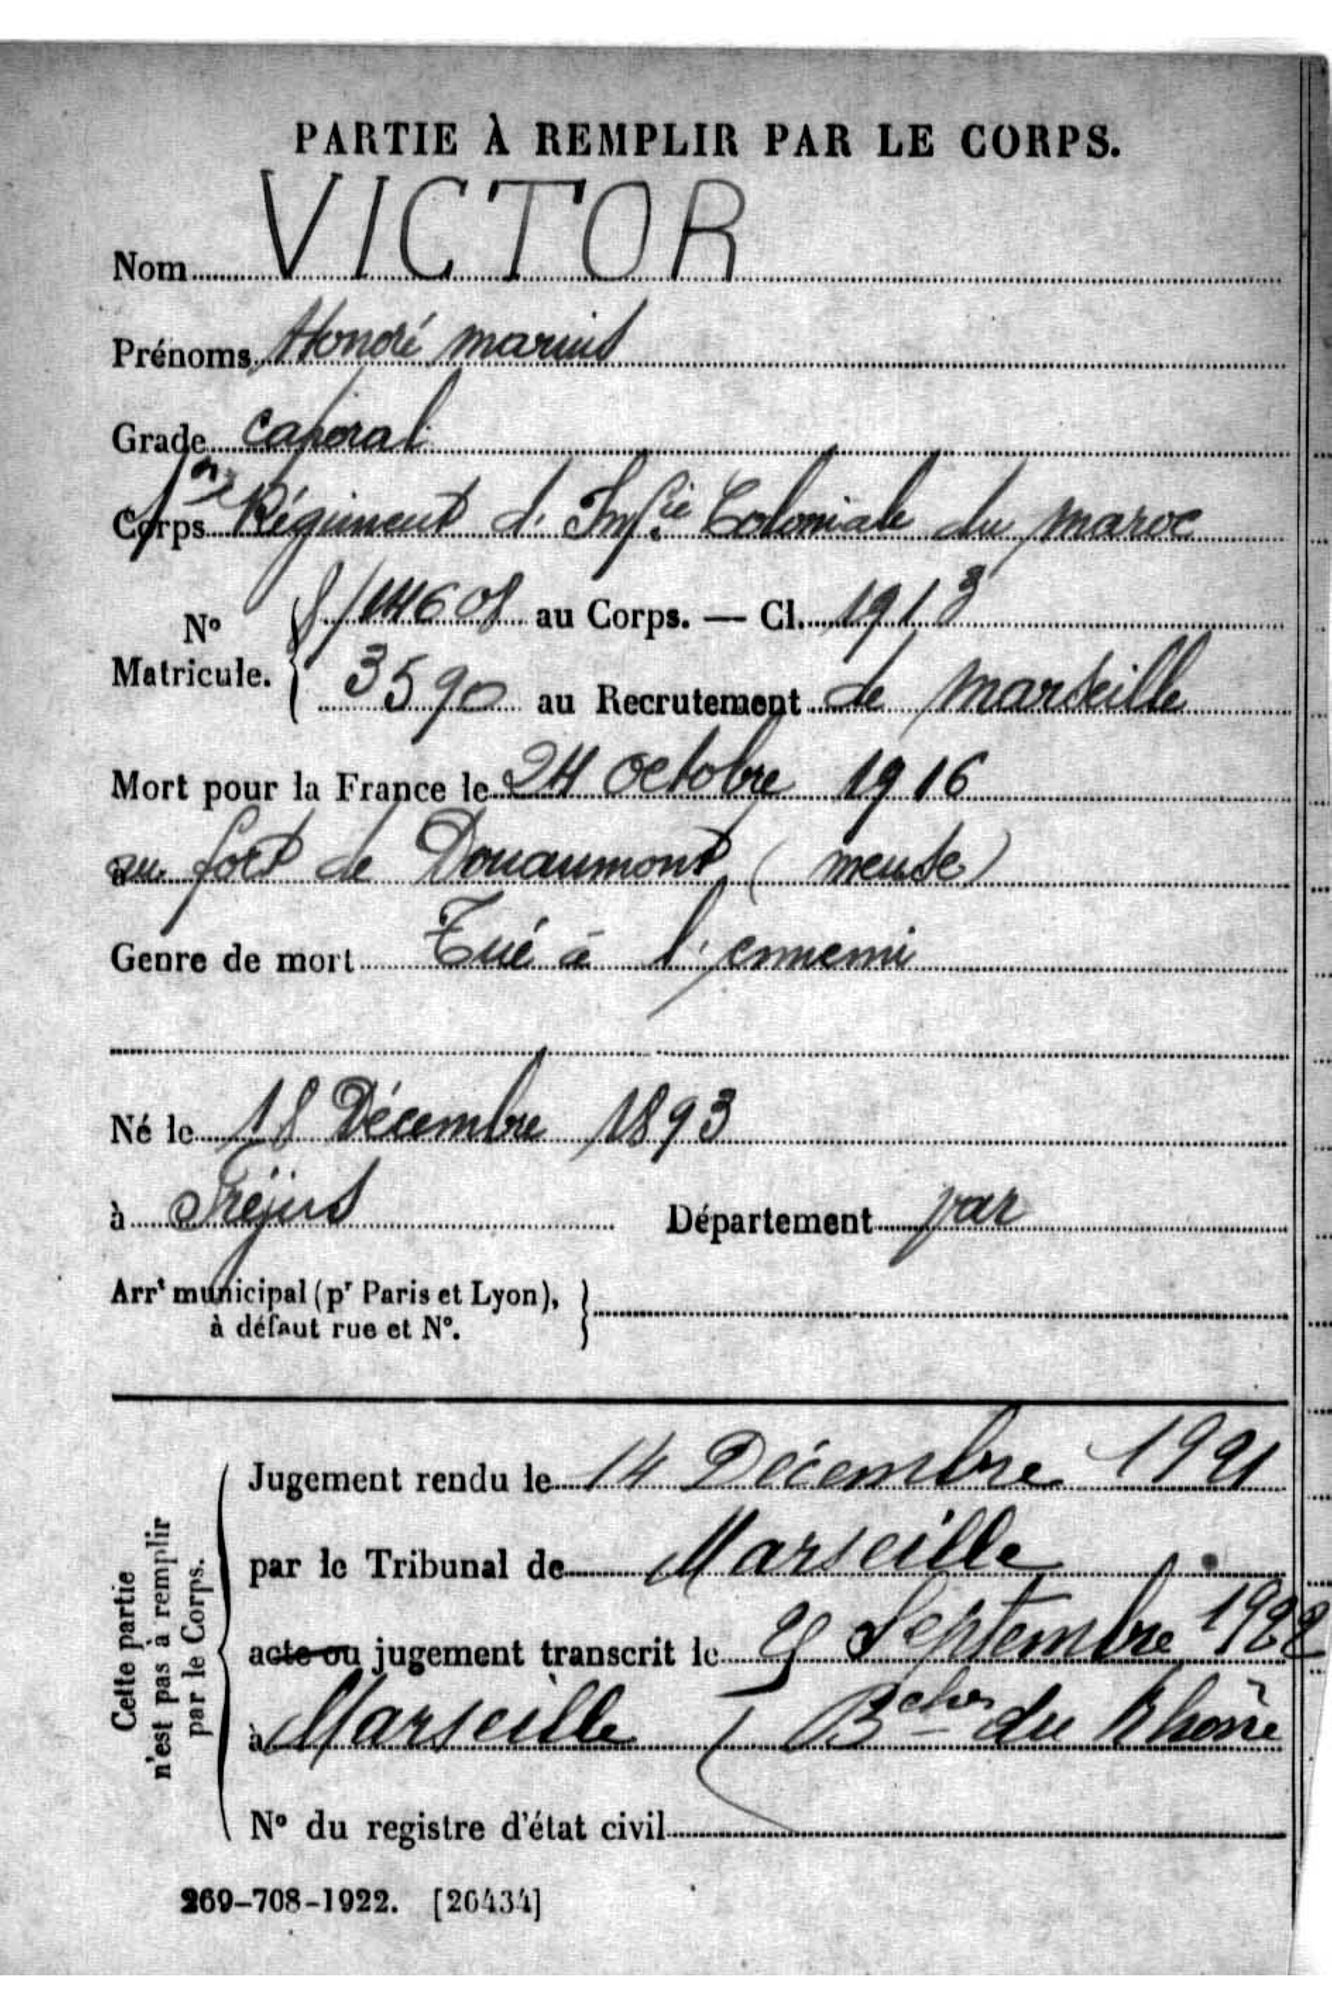 PARTIE À REMPLIR PAR LE CORPS.
Nom VICTOR
Prénoms Honoré marius
Grade caporal
Corps 1er Régiment d'Infie Coloniale du maroc
No Matricule. { 8/14608 au Corps. — Cl. 1913
3590 au Recrutement de marseille
Mort pour la France le 24 octobre 1916
au fort de Douaumont (meuse)
Genre de mort Tué à l'ennemi
Né le 18 Décembre 1893
à Fréjus Département var
Arrt municipal (pr Paris et Lyon),
à défaut rue et No.
Cette partie
n'est pas à remplir
par le Corps.
Jugement rendu le 14 Décembre 1921
par le Tribunal de Marseille
acte ou jugement transcrit le Septembre 1922
à Marseille Bches du Rhône
No du registre d'état civil
269-708-1922. [26434]